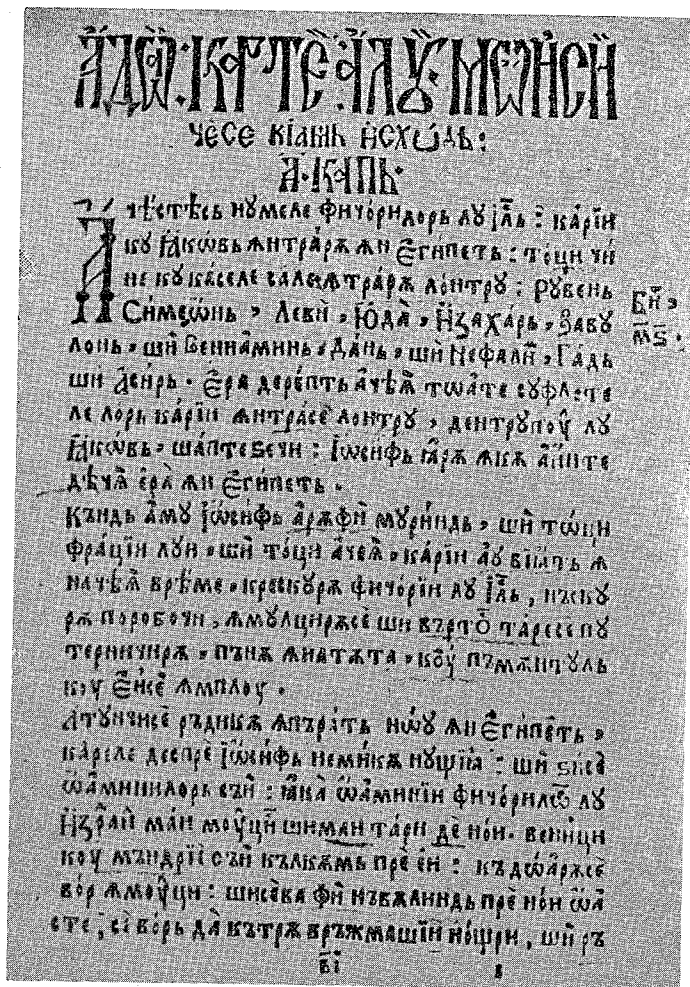 А ДѠА КАРТЕ АЛУ МѠИСИ
ЧЕСЕ КІѦМЪ ИСХѠДЬ:
А҃ КАПЬ
Ачѣстѣсь нумеле фичѡрилорь лу Іи҃ль: каріи
ку Іаковь ѫнтрарѫ ѫн Египеть: тоци чи
не ку каселе сале ѫтрарѫ лонтру: Рувень
Симеѡнь, Леви, Юда, Изахарь, Заву
лонь, ши Веннаминь, Дань, ши Нефали, Гадь
ши Асирь. Ера дерепть ачѣѫ тѡате суфлете
ле лорь каріи ѫнтрасе лонтру, дентру
Іаковь, шаптеѕечи: Іѡсифь ꙗрѫ ѫкѫ аинте
дѣчѫ ера ѫн Египеть.
Къндь аму Іѡсифь арѫфи муриндь, ши тоци
фраціи луи, ши тоци ачеѫ, каріи ау віиать ѫ
начѣѫ врѣме, крескурѫ фичоріи лу Іи҃ль, нъску
рѫ поробочи, ѫмулцирѫсе ши въртоѡ таресе пу
терничирѫ, пънѫ ѫнатѫта, кꙋ пъмѫнтуль
коу Енсе ѫмплоу.
Атунчисе рьдикѫ ѫпърать ноу ѫн Египеть,
кареле деспре Іѡсифь немикѫ нущіа: ши ѕисе
ѡаминилорь съи: ꙗка ѡаминіи фичѡрилѡ лу
Израил маи моуци шимаи тари де нои. вениц
коу мъндріе съи кълкѫмь пре еи: къ дѡарѫсе
вор ѫмоуци: шисева фи нъвѫлиндь пре нои ѡа
сте, се ворь да кътрѫ връжмашіи ношри, ши ръ
Би҃,
м҃ѕ.
в҃і